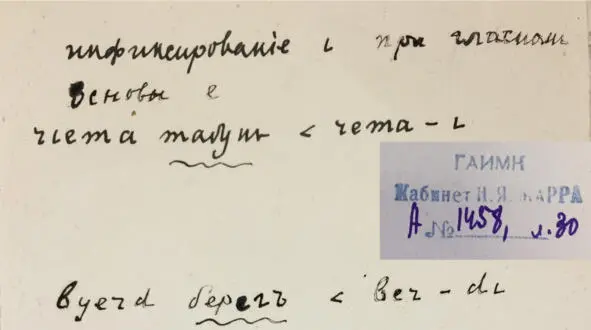 инфиксирование ι при гласном
основы е
чιета табунъ < чета-ι
ГАИМК
Кабинет Н. Я. МАРРА
А № 1458, л. 30
берегъ <